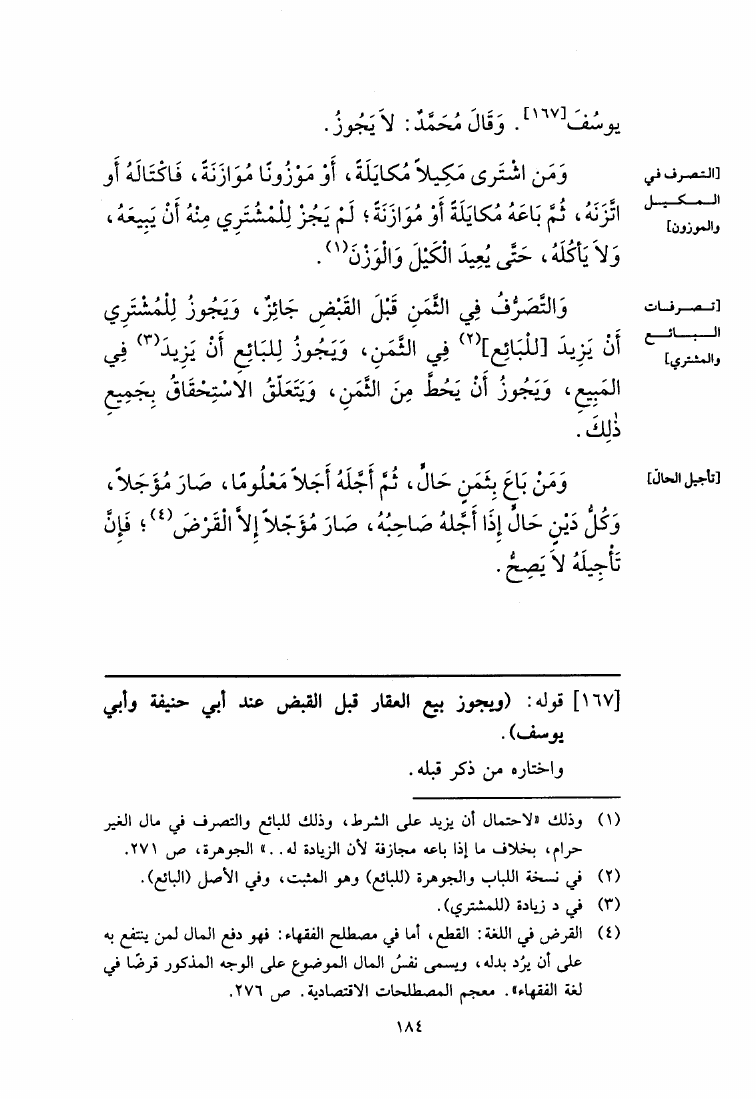 يوسُفَ[١٦٧]. وَقَالَ مُحَمَّدٌ: لاَ يَجُوزُ.
[التصرف في
المكيل
والموزون]
وَمَن اشْتَرى مَكِيلاً مُكَايَلَةً، أَوْ مَوْزُونًا مُوَازَنَةً، فَاكْتَالَهُ أو
اتَّزَنَهُ، ثُمَّ بَاعَهُ مُكَايَلَةً أوْ مُوَازَنَةً؛ لَمْ يَجُزْ لِلْمُشْتَرِي مِنْهُ أَنْ يَبِيعَهُ،
وَلاَ يَأْكُلَهُ، حَتَّى يُعِيدَ الْكَيْلَ وَالْوَزْنَ(١).
[تصرفات
البائع
والمشتري]
وَالتَّصَرُّفُ فِي الثَّمَنِ قَبْلَ القَبْضِ جَائِزٌ، وَيَجُوزُ لِلْمُشْتَرِي
أَنْ يَزِيدَ [للْبَائِعِ](٢) فِي الثَّمَنِ، وَيَجُوزُ لِلبَائِعِ أَنْ يَزِيدَ(٣) فِي
المَبِيعِ، وَيَجُوزُ أَنْ يَحُطَّ مِنَ الثَّمَنِ، وَيَتَعَلَّقُ الاسْتِحْقَاقُ بِجَمِيعِ
ذٰلِكَ.
[تأجيل الحالّ]
وَمَنْ بَاعَ بِثَمَنٍ حَالٍّ، ثُمَّ أَجَّلَهُ أَجَلاً مَعْلُومًا، صَارَ مُؤَجَلاً،
وَكُلُّ دَيْنٍ حَالٍّ إِذَا أَجَّلهُ صَاحِبُهُ، صَارَ مُؤَجّلاً إلاَّ الْقَرْضَ(٤)؛ فَإِنَّ
تَأْجِيلَهُ لاَ يَصِحُّ.
[١٦٧] قوله: (ويجوز بيع العقار قبل القبض عند أبي حنيفة وأبي
يوسف).
واختاره من ذكر قبله.
(١) وذلك «لاحتمال أن يزيد على الشرط، وذلك للبائع والتصرف في مال الغير
حرام، بخلاف ما إذا باعه مجازفة لأن الزيادة له..». الجوهرة، ص ٢٧١.
(٢) في نسخة اللباب والجوهرة (للبائع) وهو المثبت، وفي الأصل (البائع).
(٣) في د زيادة (للمشتري).
(٤) القرض في اللغة: القطع، أما في مصطلح الفقهاء: فهو دفع المال لمن ينتفع به
على أن يرُد بدله، ويسمى نفسُ المال الموضوع على الوجه المذكور قرضًا في
لغة الفقهاء». معجم المصطلحات الاقتصادية. ص ٢٧٦.
١٨٤